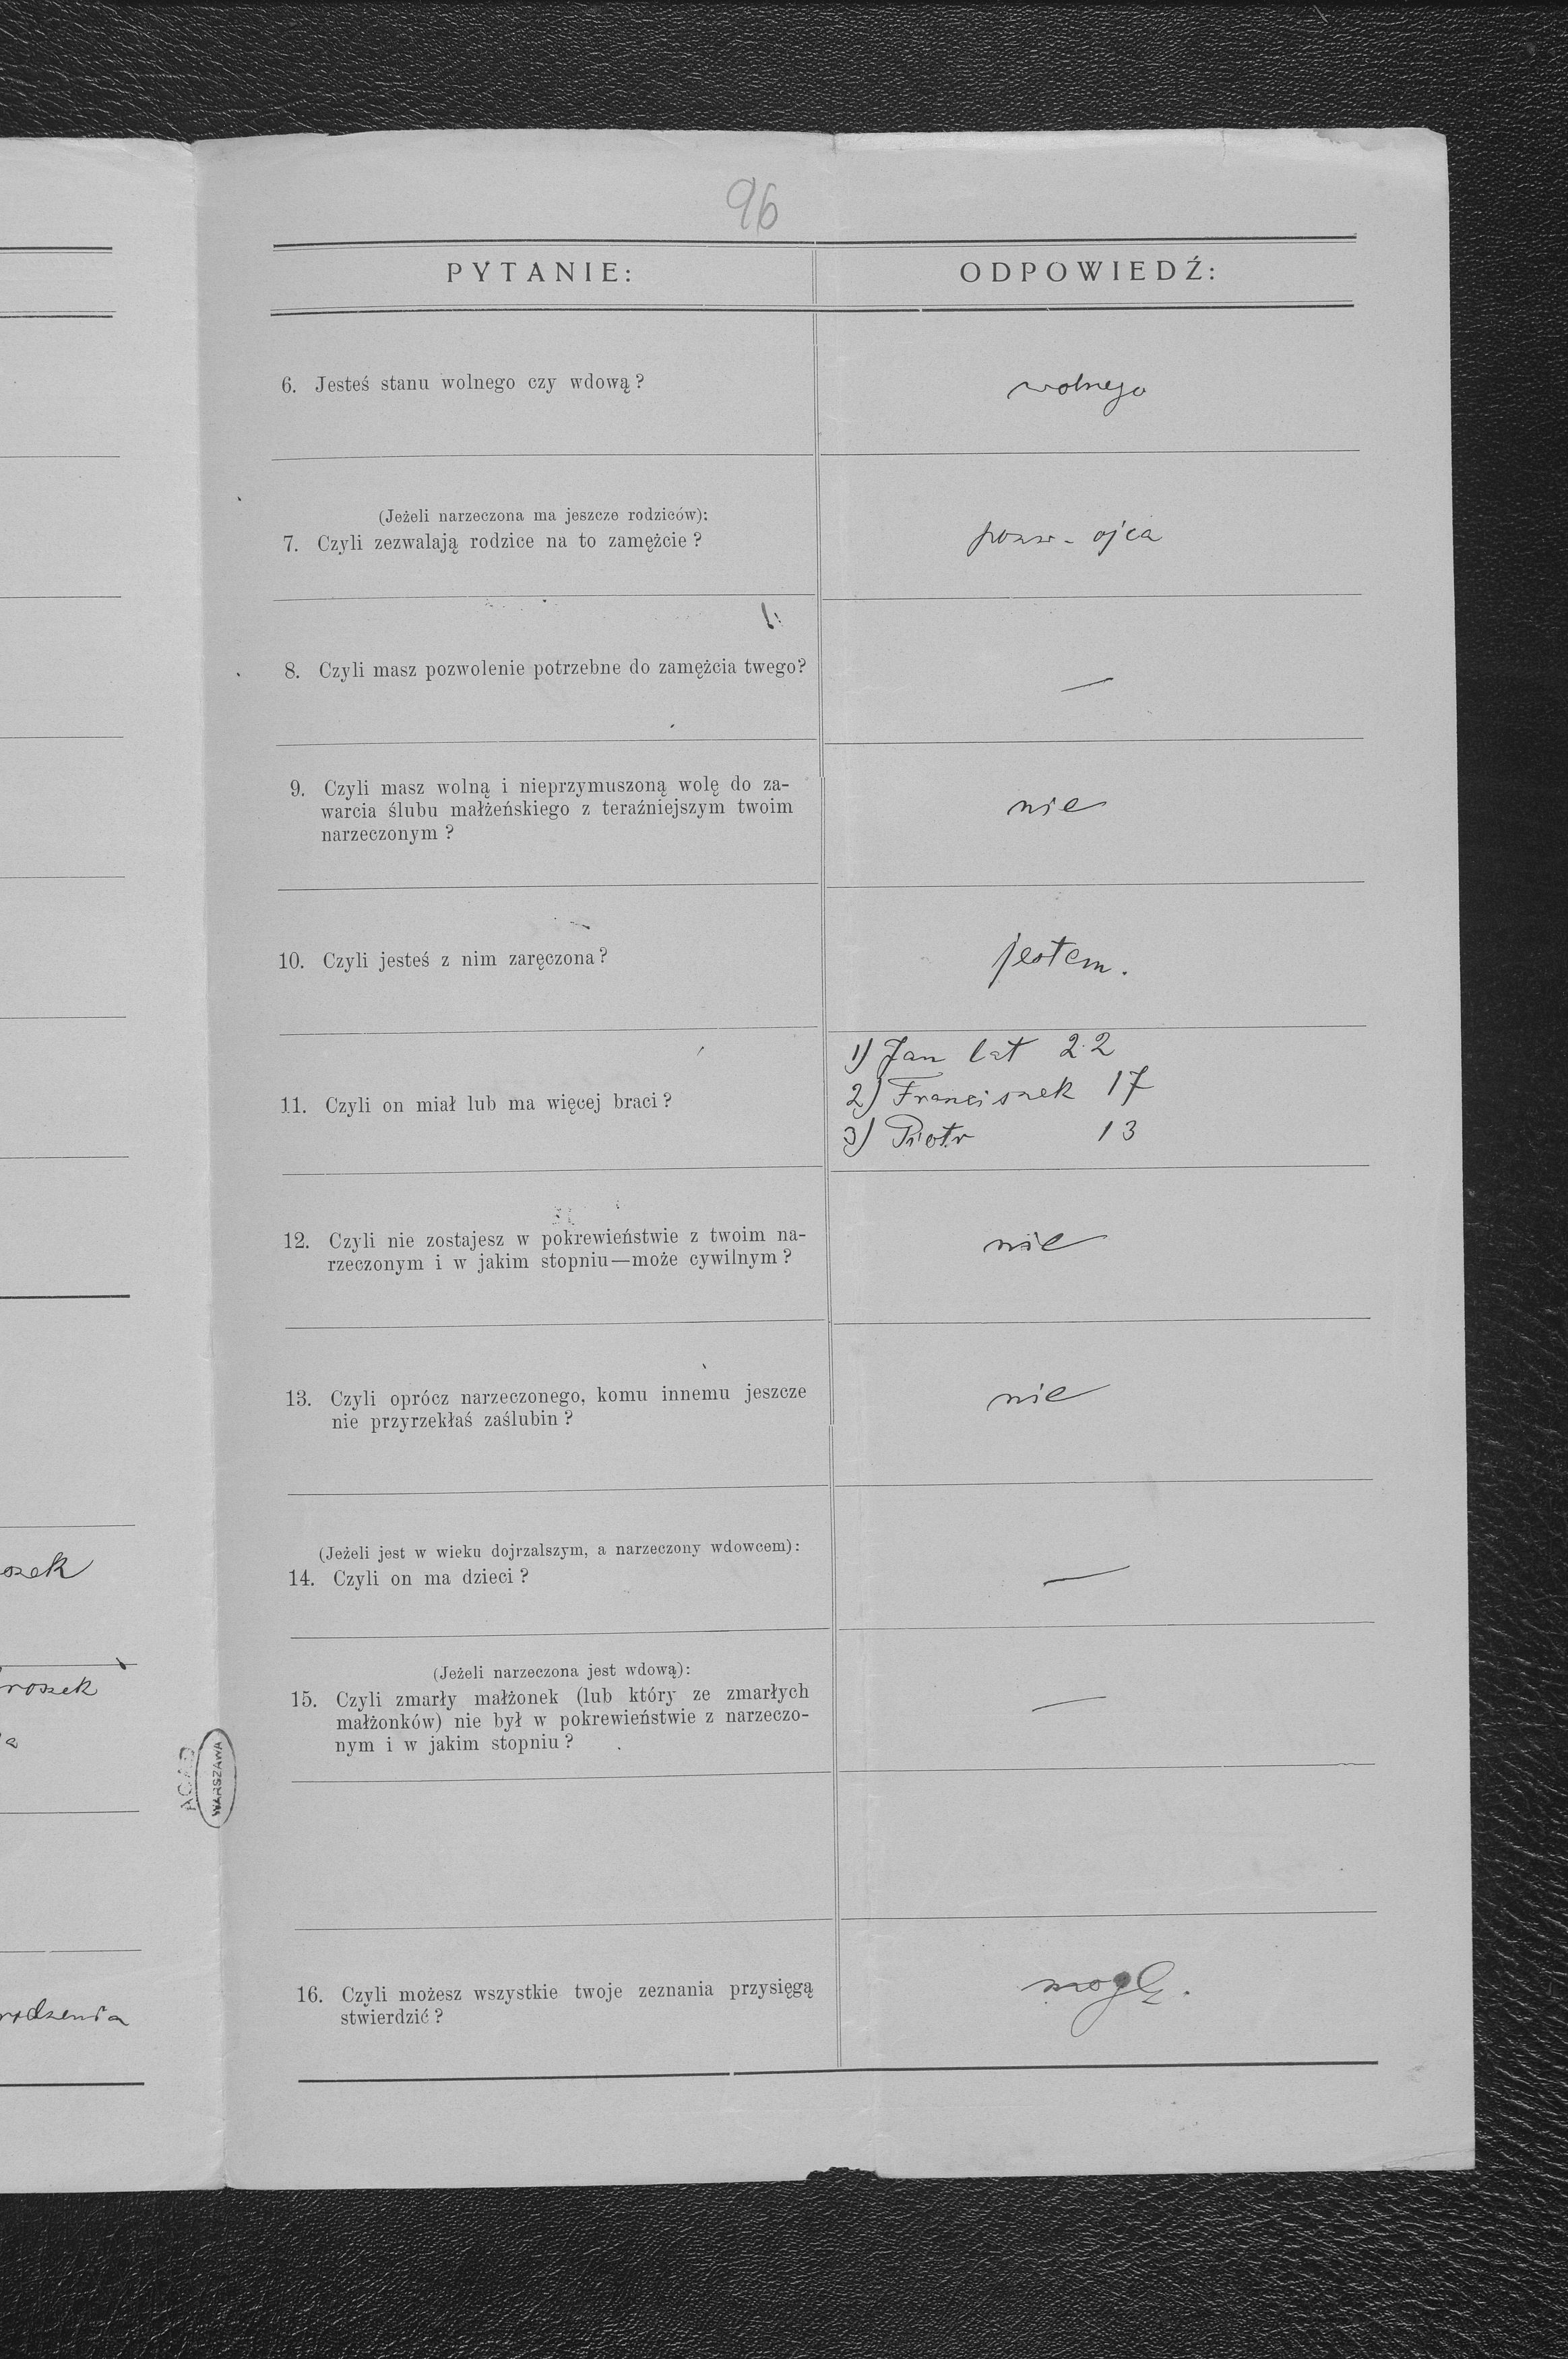 96
PYTANIE:
ODPOWIEDŹ:
6. Jesteś stanu wolnego czy wdową?
wolnego
(Jeżeli narzeczona ma jeszcze rodziców):
7. Czyli zezwalają rodzice na to zamężcie?
pozw. ojca
8. Czyli masz pozwolenie potrzebne do zamężcia twego?
—
9. Czyli masz wolną i nieprzymuszoną wolę do za-
warcia ślubu małżeńskiego z teraźniejszym twoim
narzeczonym?
nie
10. Czyli jesteś z nim zaręczona?
jestem.
11. Czyli on miał lub ma więcej braci?
1) Jan lat 22
2) Franciszek 17
3) Piotr 13
12. Czyli nie zostajesz w pokrewieństwie z twoim na-
rzeczonym i w jakim stopniu—może cywilnym?
nie
13. Czyli oprócz narzeczonego, komu innemu jeszcze
nie przyrzekłaś zaślubin?
nie
(Jeżeli jest w wieku dojrzalszym, a narzeczony wdowcem):
14. Czyli on ma dzieci?
—
(Jeżeli narzeczona jest wdową):
15. Czyli zmarły małżonek (lub który ze zmarłych
małżonków) nie był w pokrewieństwie z narzeczo-
nym i w jakim stopniu?
—
16. Czyli możesz wszystkie twoje zeznania przysięgą
stwierdzić?
mogę.
AGAD
WARSZAWA